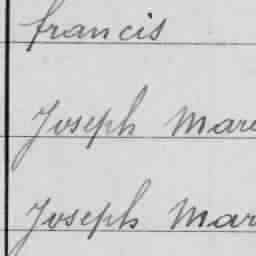 francis
Joseph Mare
Joseph Mar